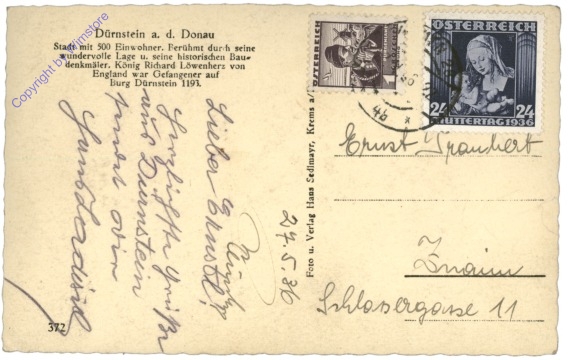 Dürnstein a. d. Donau
Stadt mit 500 Einwohner. Berühmt durch seine
wundervolle Lage u. seine historischen Bau-
denkmäler. König Richard Löwenherz von
England war Gefangener auf
Burg Dürnstein 1193.
Copyright by
Lieber Ernstl!
Herzlichste Grüße
aus Dürnstein
sendet dir
27.5.36
372
Foto u. Verlag Hans Sedlmayr, Krems a/
ÖSTERREICH
ÖSTERREICH
24 24
MUTTERTAG 1936
Ernst
Znaim
Schlossergasse 11